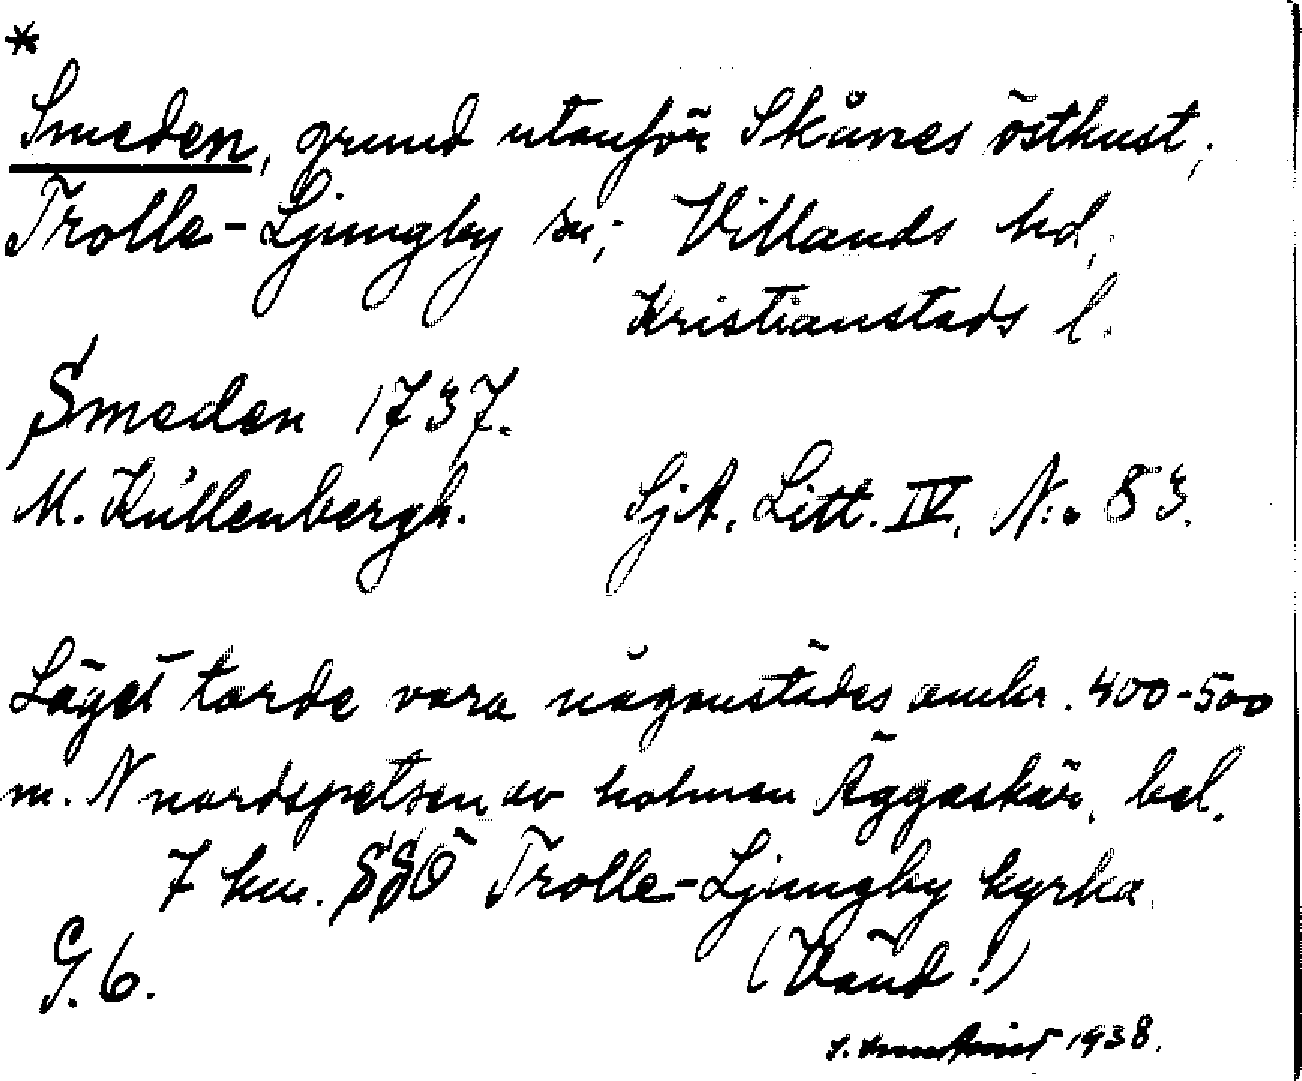 *
Smeden, grund utanför Skånes östkust,
Trolle-Ljungby sn; Villands hd,
Kristianstads l.
Smeden 1737.
M. Kullenbergh. SjA. Litt. IV. N:o 83.
Läget torde vara någonstädes omkr. 400-500
m. N nordspetsen av holmen Äggaskär, bel.
7 km. SSÖ Trolle-Ljungby kyrka.
G. 6. (Vänd!)
1938.